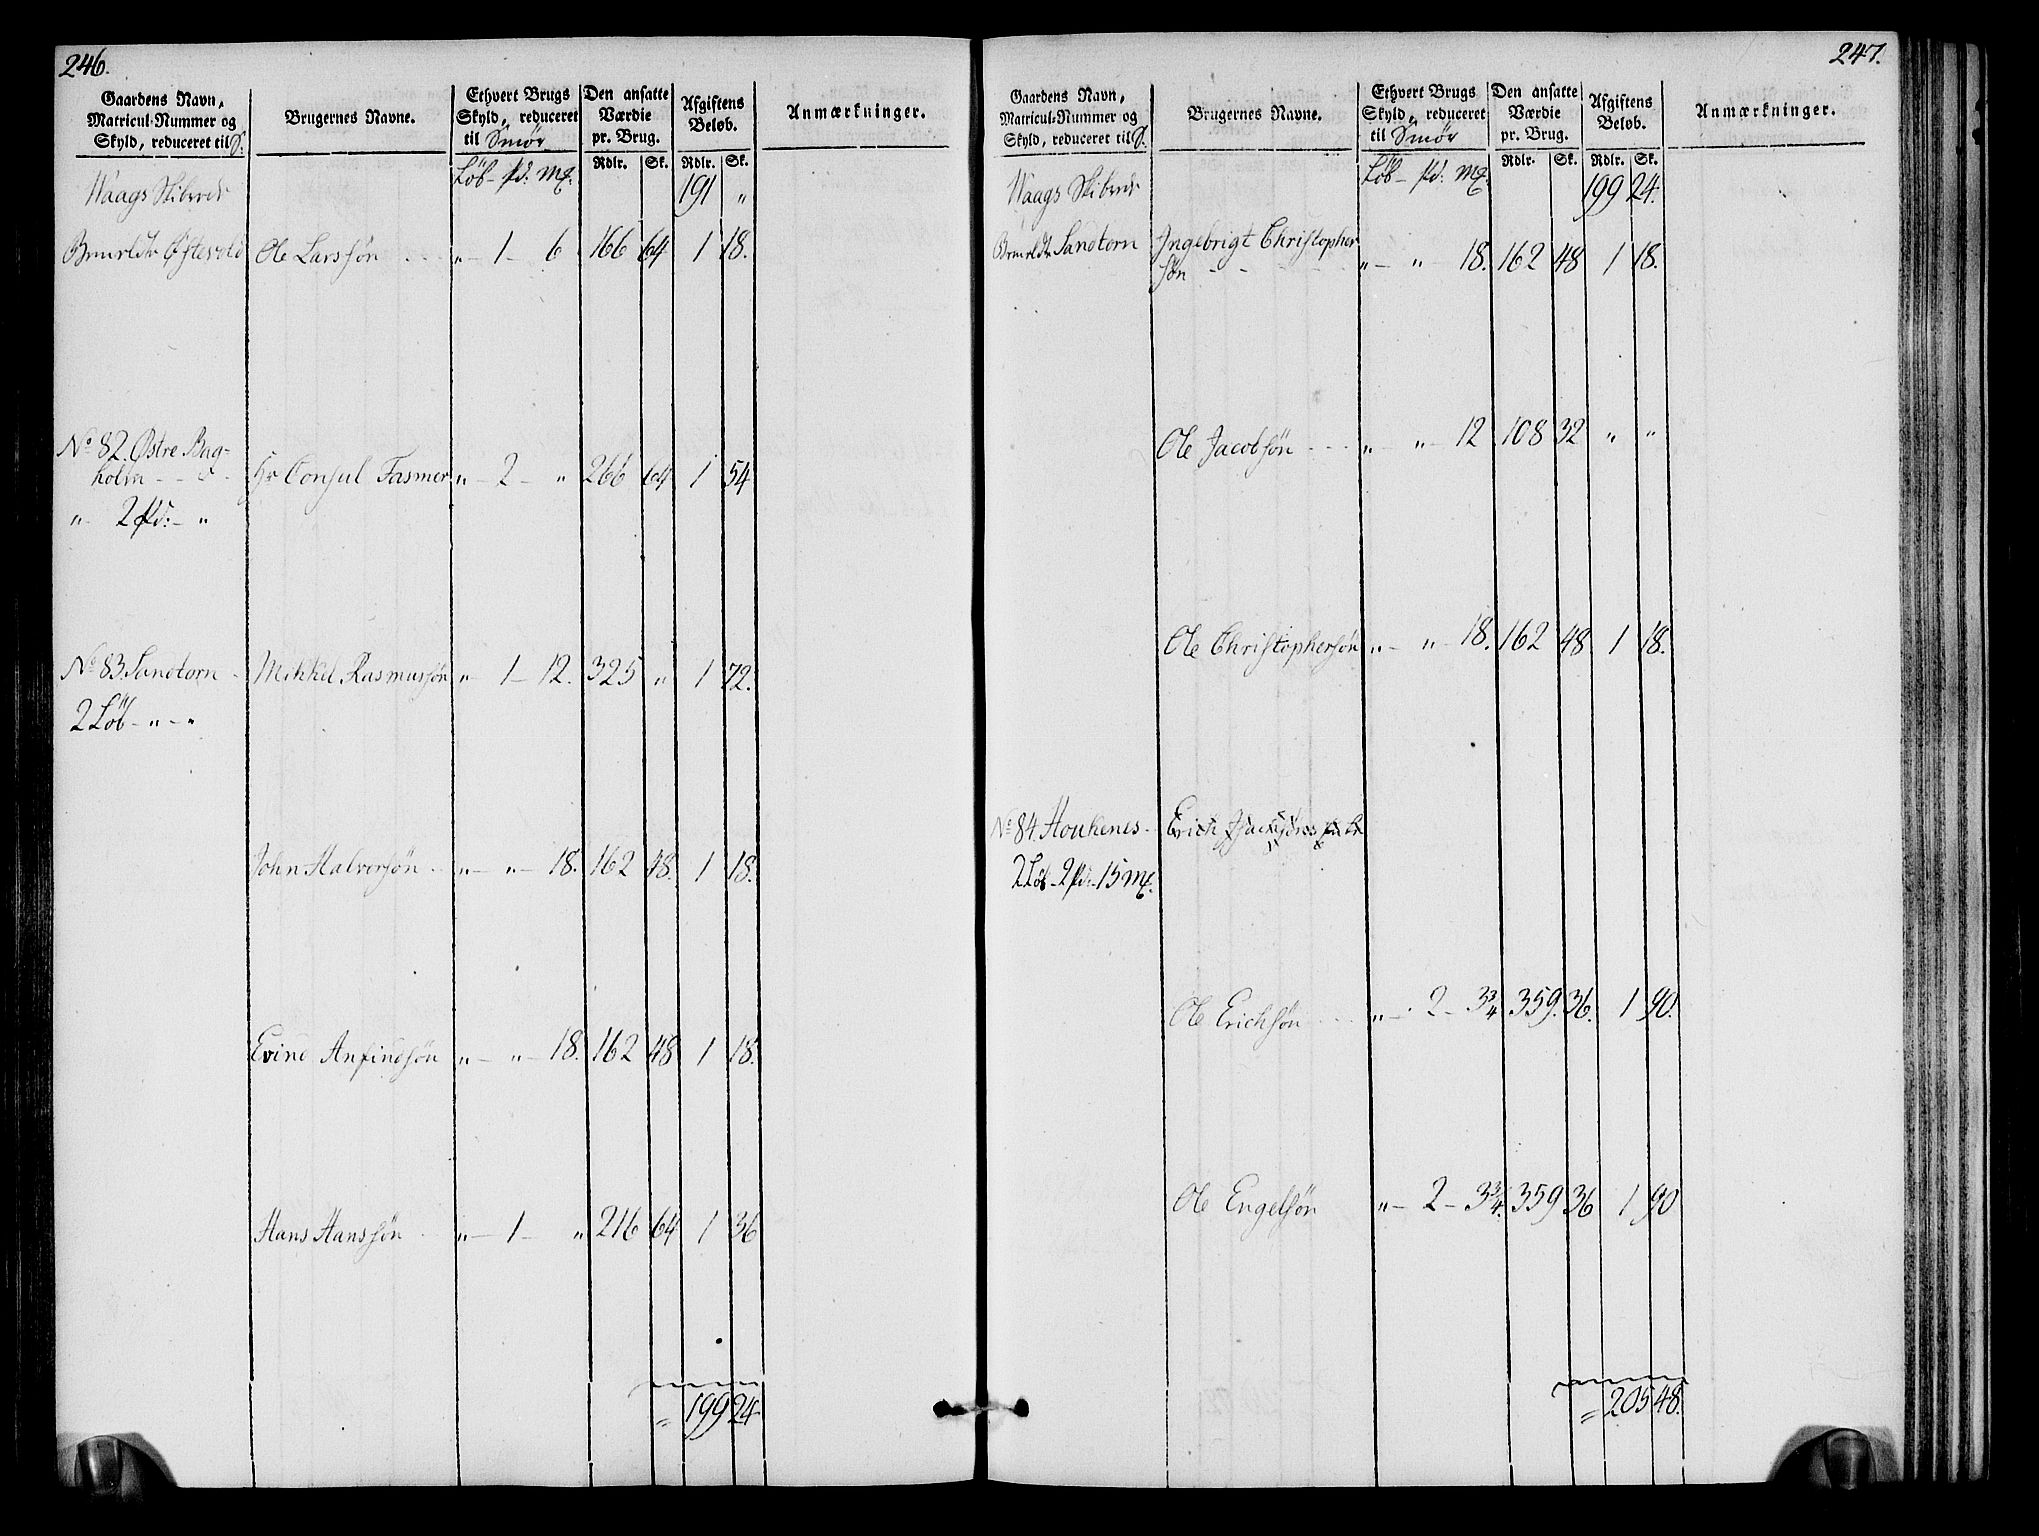 246.
Gaardens Navn, Matricul-Nummer og Skyld, reduceret til S. | Brugernes Navne. | Ethvert Brugs Skyld, reduceret til Smør | Den ansatte Værdie pr. Brug. | Afgiftens Beløb. | Anmærkninger.
Rdlr. | Sk. | Rdlr. | Sk.
Waags Skibrede | Löb - pd: Mk: | 191 | "
Østevold | Ole Larssøn | " - 1 - 6 | 166 | 64 | 1 | 18.
No 82. Østre Bag-
holm | Hr Consul Fasmer | " - 2 - " | 266 | 64 | 1 | 54
" - 2 pd: - "
No 83. Sandtorn | Mikkel Rasmussøn | " - 1 - 12. | 325 | " | 1 | 72.
2 Löb - " - "
John Halversøn | " - " - 18. | 162 | 48. | 1 | 18.
Evind Anfindsøn | " - " - 18. | 162 | 48 | 1 | 18.
Hans Hanssøn | " - 1 - " | 216 | 64 | 1 | 36
= 199 | 24
247.
Gaardens Navn, Matricul-Nummer og Skyld, reduceret til S. | Brugernes Navne. | Ethvert Brugs Skyld, reduceret til Smör | Den ansatte Værdie pr. Brug. | Afgiftens Beløb. | Anmærkninger.
Rdlr. | Sk. | Rdlr. | Sk.
Waags Skibrede | Löb - pd: Mk: | 199 | 24.
Sandtorn | Ingebrigt Christopher
søn | " - " - 18. | 162 | 48 | 1 | 18.
Ole Jacobsøn | " - " - 12 | 108 | 32 | " | "
Ole Christophersøn | " - " - 18. | 162 | 48 | 1 | 18.
No 84. Houkenes | Erich
2 Löb - 2 pd: - 15 Mk.
Ole Erichsøn | " - 2 - 3 3/4 | 359. | 36. | 1 | 90.
Ole Engelsøn | " - 2 - 3 3/4. | 359 | 36 | 1 | 90
= 205 | 48.